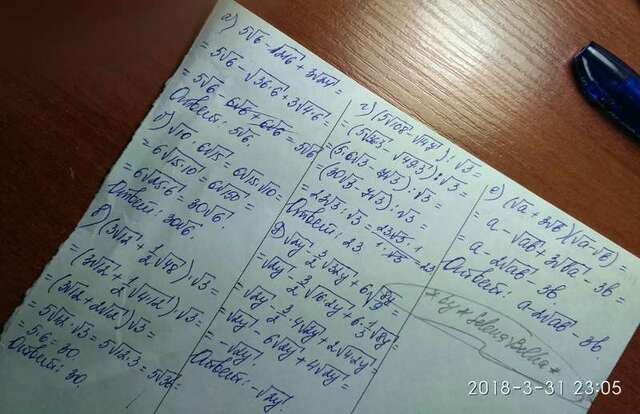 а) 5√6 - √216 + 3√24 =
= 5√6 - √36·6 + 3√4·6 =
= 5√6 - 6√6 + 6√6 = 5√6
Ответ: 5√6.
б) √10 · 6√15 =
= 6√15·10 = 6√150 =
= 6√25·6 = 30√6.
Ответ: 30√6.
в) (3√12 + 1/2 √48) · √3 =
= (3√12 + 1/2 √4·12) · √3 =
= (3√12 + 2√12) √3 =
= 5√12 · √3 = 5√12·3 = 5√36 =
= 5·6 = 30
Ответ: 30.
г) (5√108 - √147) : √3 =
= (5√36·3 - √49·3) : √3 =
= (5·6√3 - 7√3) : √3 =
= (30√3 - 7√3) : √3 =
= 23√3 : √3 = 23√3·1 / 1·√3 = 23
Ответ: 23
д) √2y - 3/2 √32y + 6·√
= √2y - 3/2 √16·2y + 6·1/3
= √2y - 3/2 · 4√2y + 2√4·2y =
= √2y - 6√2y + 4√2y =
= -√2y
Ответ: -√2y.
е) (√a + 3√b)(√a - √b) =
= a - √ab + 3√ba - 3b =
Ответ: a
* by *
2018-3-31 23:05